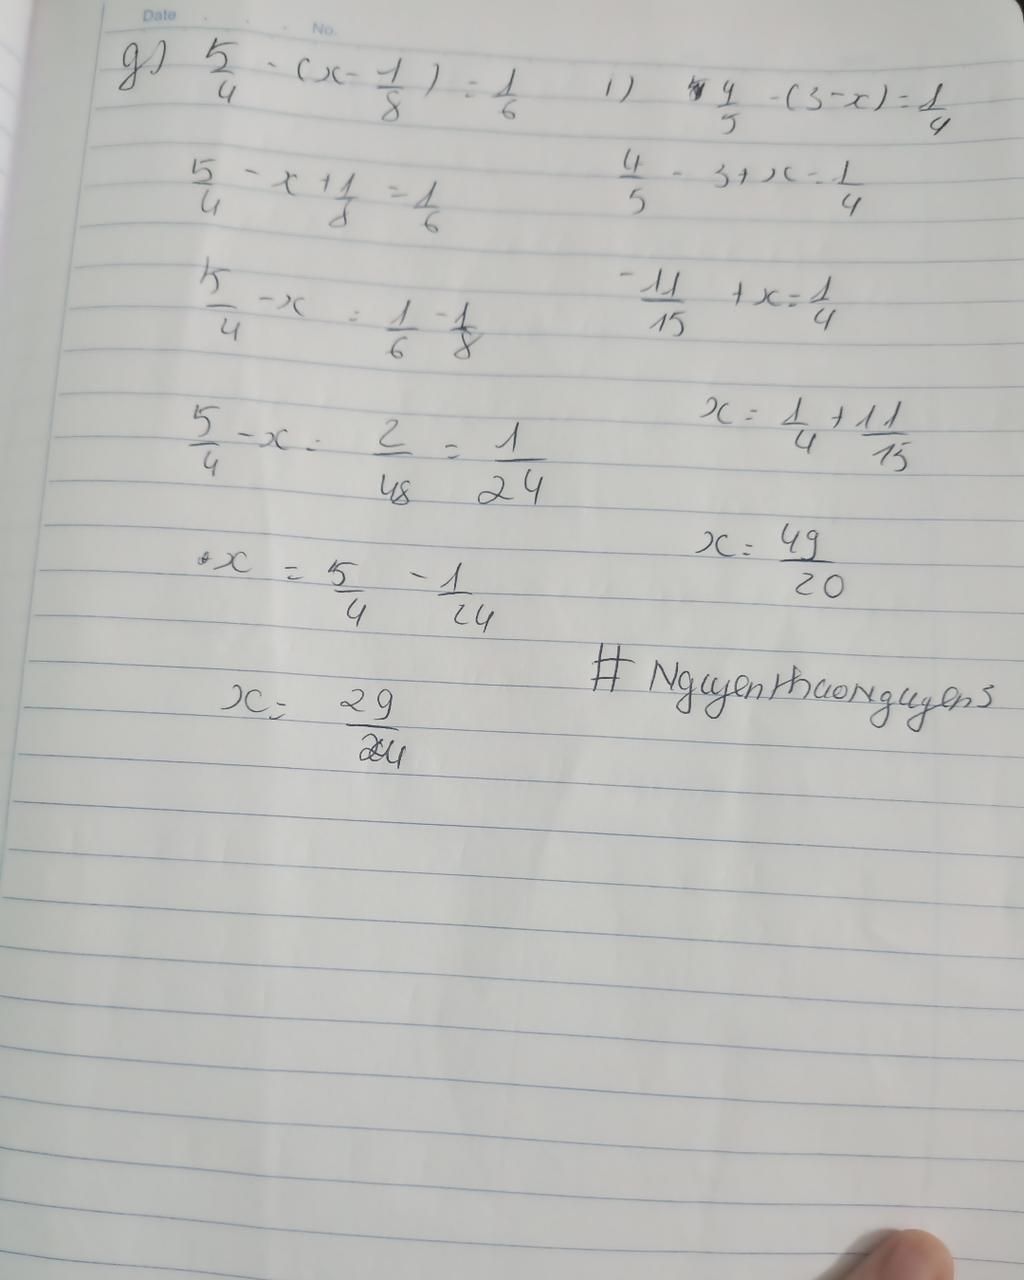 Date No.
g) 5/4 - (x - 1/8) = 1/6
5/4 - x + 1/8 = 1/6
5/4 - x = 1/6 - 1/8
5/4 - x = 2/48 = 1/24
x = 5/4 - 1/24
x = 29/24
i) 4/5 - (3 - x) = 1/4
4/5 - 3 + x = 1/4
-11/15 + x = 1/4
x = 1/4 + 11/15
x = 49/20
# NguyenthaoNguyen5